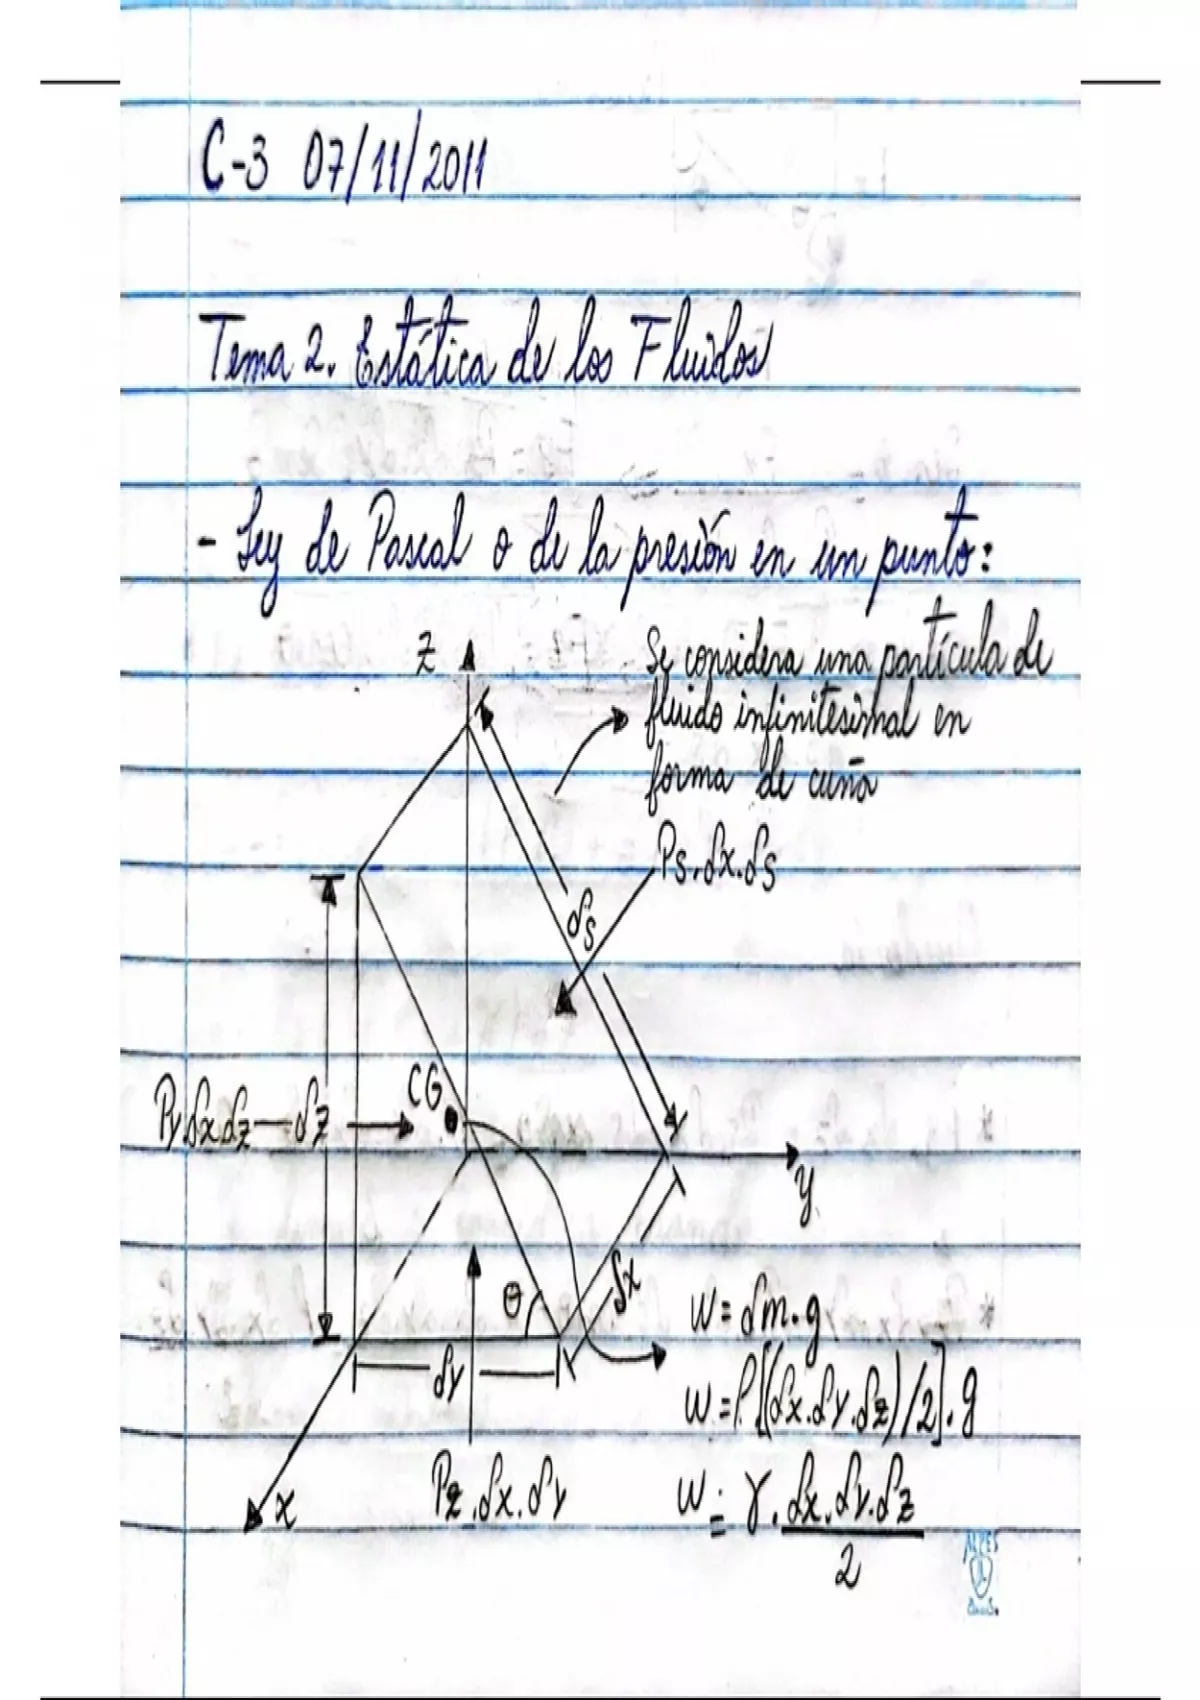 C-3 07/11/2011
Tema 2. Estática de los Fluidos
- Ley de Pascal o de la presión en un punto:
Z
Se considera una partícula de
fluido infinitesimal en
forma de cuña
Ps.δx.δs
δs
CG
Py.δx.δz
δz
y
δx
θ
W = δm.g
δy
W = ρ[(δx.δy.δz)/2].g
x
Pz.δx.δy
W = γ. δx.δy.δz
2
ALPES